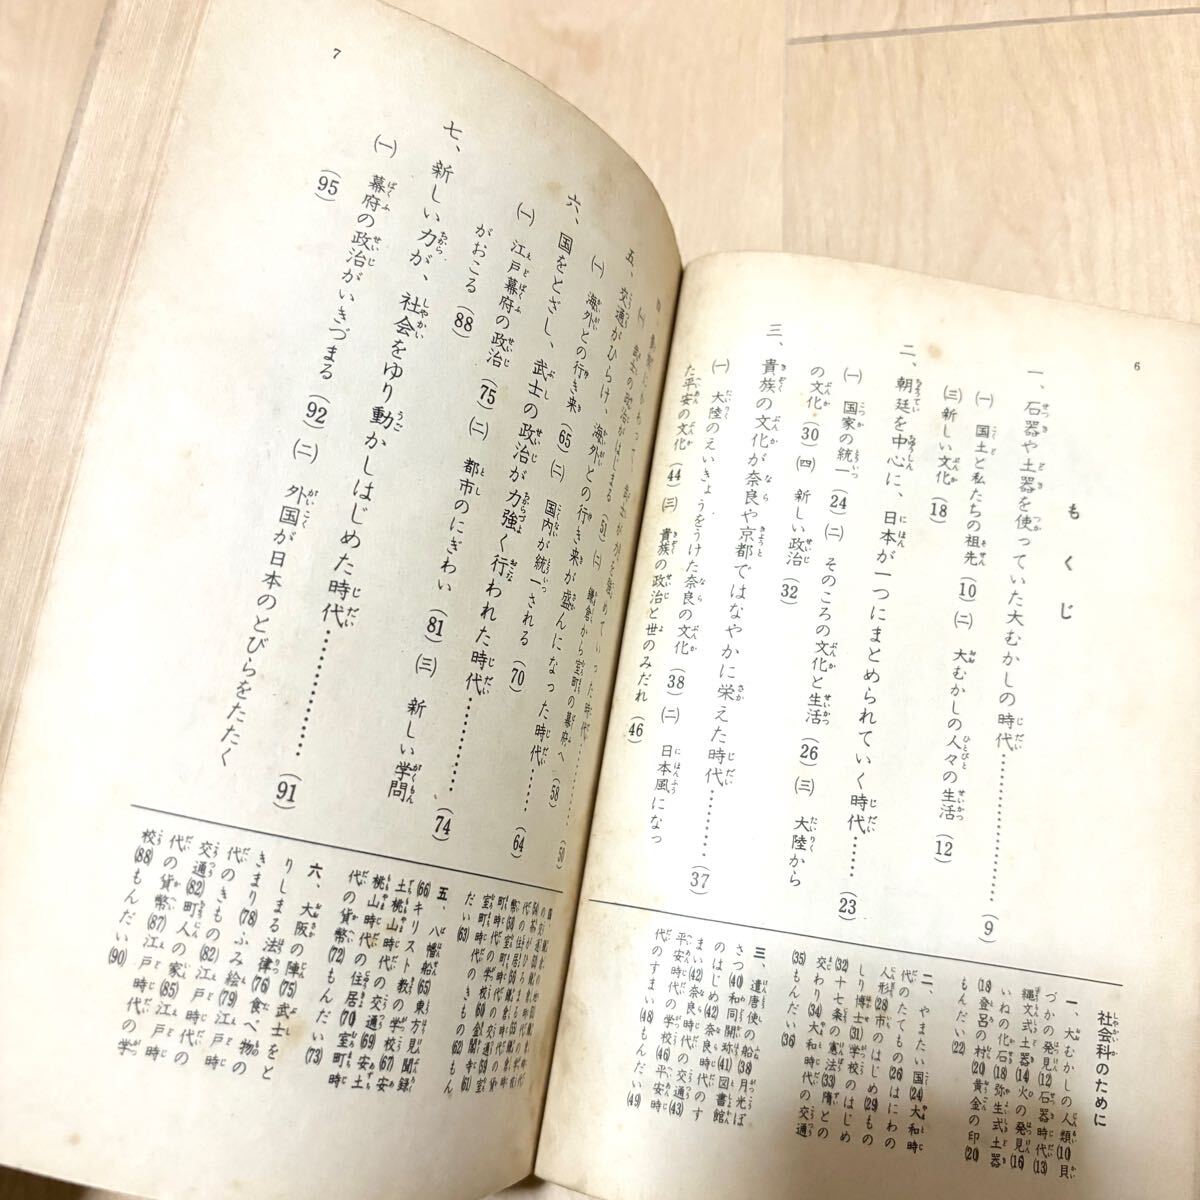 6
もくじ
一、石器や土器を使っていた大むかしの時代…………(9)
㈠ 国土と私たちの祖先 (10) ㈡ 大むかしの人々の生活 (12)
㈢ 新しい文化 (18)
二、朝廷を中心に、日本が一つにまとめられていく時代……23
㈠ 国家の統一 (24) ㈡ そのころの文化と生活 (26) ㈢ 大陸から
の文化 (30) ㈣ 新しい政治 (32)
三、貴族の文化が奈良や京都ではなやかに栄えた時代………(37)
㈠ 大陸のえいきょうをうけた奈良の文化 (38) ㈡ 日本風になっ
た平安の文化 (44) ㈢ 貴族の政治と世のみだれ (46)
社会科のために
一、大むかしの人類(10)貝
づかの発見(12)石器時代(13)
縄文式土器(14)火の発見(16)
いねの化石(18)弥生式土器
(18)登呂の村(20)黄金の印(20)
もんだい(22)
二、やまたい国(24)大和時
代のたてもの(26)はにわの
人形(28)市のはじめ(29)もの
しり博士(31)学校のはじめ
(32)十七条の憲法(33)隋との
交わり(34)大和時代の交通
(35)もんだい(36)
三、遣唐使の船(38)月光ぼ
さつ(40)和同開珎(41)図書館
のはじめ(42)奈良時代のす
まい(42)奈良時代の交通(43)
平安時代の学校(46)平安時
代のすまい(48)もんだい(49)
7
㈠ 武士の政治がはじまる (51) ㈡ 鎌倉から室町の幕府へ (58)
五、交通がひらけ、海外との行き来が盛んになった時代……(64)
㈠ 海外との行き来 (65) ㈡ 国内が統一される (70)
六、国をとざし、武士の政治が力強く行われた時代…………(74)
㈠ 江戸幕府の政治 (75) ㈡ 都市のにぎわい (81) ㈢ 新しい学問
がおこる (88)
七、新しい力が、社会をゆり動かしはじめた時代…………(91)
㈠ 幕府の政治がいきづまる (92) ㈡ 外国が日本のとびらをたたく
(95)
室町時代のきもの(62)もん
だい(63)
五、八幡船(65)東方見聞録
(66)キリスト教の学校(67)安
土桃山時代の交通(69)安土
桃山時代の住居(70)室町時
代の貨幣(72)もんだい(73)
六、大阪の陣(75)武士をと
りしまる法律(76)食べ物の
きまり(78)ふみ絵(79)江戸時
代のきもの(82)江戸時代の
交通(82)町人の家(85)江戸時
代の貨幣(87)江戸時代の学
校(88)もんだい(90)